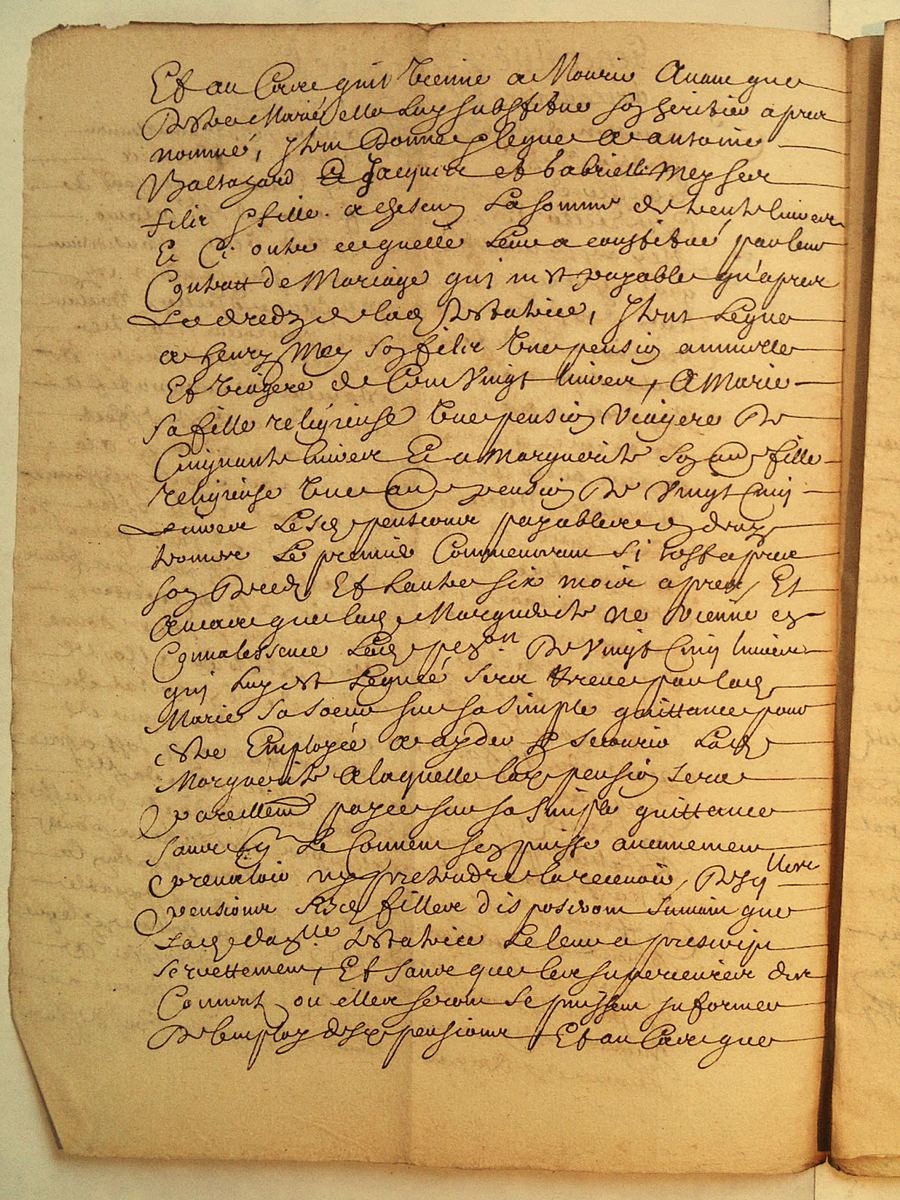 Et au Cas quil vienne a Mourir Avant que
destre Marié elle luy substitue son heritier apres
nommé, Item Donne & legue a antoine
Baltazard Jacques et Gabrielle Mey ses
filz & fille a chascun La somme de trente livres
Et Ce outre ce quelle Leur a constitué par leur
Contratt de Mariage qui nest payable qu'apres
Le deceds de lad testatrice, Item Legue
a henry Mey son filz Une pension annuelle
Et viagere de Cent Vingt livres, A Marie
sa fille religieuse Une pension Viagere De
Cinquante livres Et a Marguerite son au fille
religieuse Une au pension De Vingt Cinq
Livres Lesd pensions payables en deux
termes Le premier Commencant Si tost apres
son Deceds, Et Lautre six mois apres, Et
Au cas que lad Marguerite ne Vienne en
Convalessence Lad pen.on De Vingt Cinq livres
qui luy est Leguée sera receue par lad
Marie Sa soeur sur sa simple quittance pour
estre Employée a ayder & secourir Lad
Marguerite A laquelle lad pension sera
pareillem payée sur sa simple quittance
sans q Le Couvent sen puisse aucunement
prevaloir ny pretendre la recevoir, Desquelles
pensions lesd filles disposeront suivant que
Lad da.lle testatrice Le leur a prescript
secrettement, Et sans que les superieures des
Couvent ou elles seront se puissent informer
De lemploy desd pensions, Et au Cas que